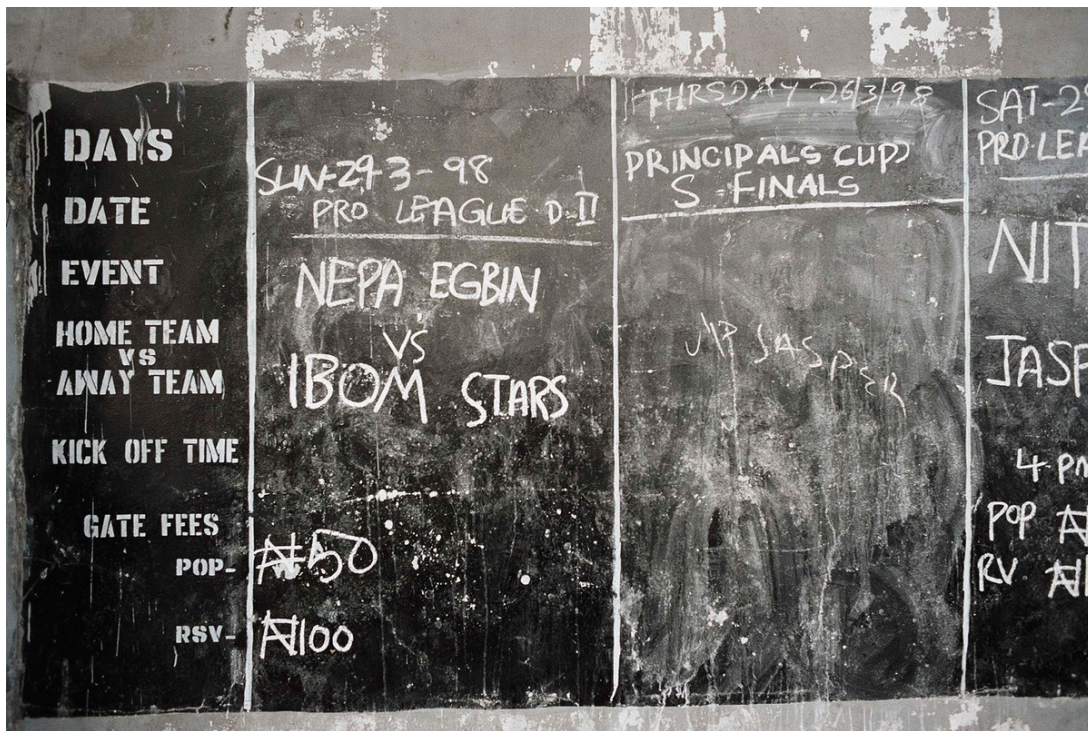 DAYS
DATE
EVENT
HOME TEAM
VS
AWAY TEAM
KICK OFF TIME
GATE FEES
POP-
RSV-
SUN-29-3-98
PRO LEAGUE D-II
NEPA EGBIN
VS
IBOM STARS
₦50
₦100
THRSDAY 26/3/98
PRINCIPALS CUP
S-FINALS
MR JASPER
SAT-2
PRO LEA
NIT
JASP
4 PM
POP ₦
RV ₦1